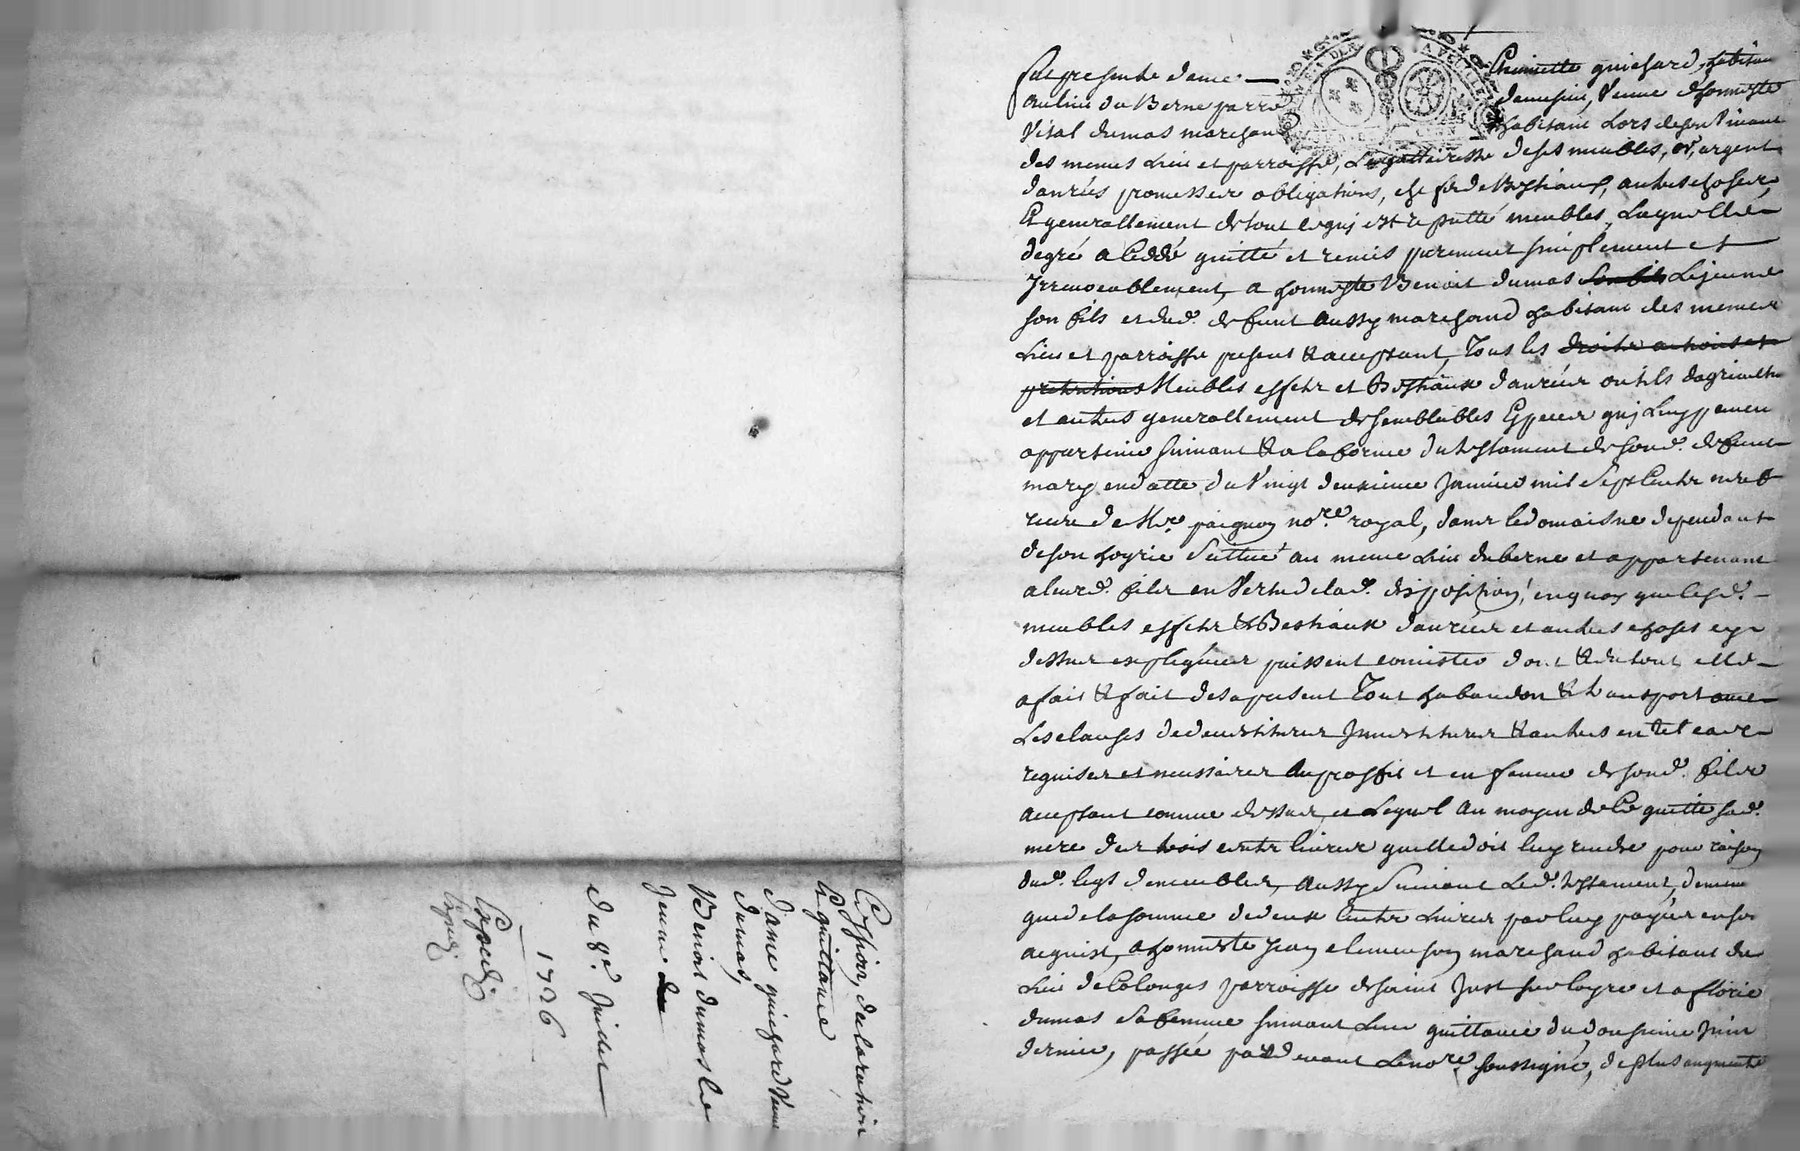 fut presente dame Thoinette guichard, habitan
au lieu du Berne parro damesieu, veuve dhonneste
Vital dumas marchand habitant Lors de son Vivant
des memes Lieu et parroisse, Legatteiresse de ses meubles, or, argent
danrées promesses obligations, chefs de Bestiaux, autres choses
Et generallement de tout ce quj est reputté meubles, Laquelle
degré a Ceddé quitté et remis purement simplement et
Irrevocablement, a honneste Benoit dumas Lejeune
son fils et dud. defunt aussy marchand habitant des memes
Lieu et parroisse present & acceptant, Tous les droits actions et
pretentions Meubles effets et Bestiaux danrées outils dagriculture
et autres generallement de semblables Especes quj Luy peuvent
appartenir suivant & a la forme du testament de sond. defunt
mary en datte du Vingt deuxieme Janvier mil Sept Cent
receu de Me. paignon nore royal, dans le domaisne dependant
de son hoyrie scittué au meme Lieu du berne et appartenant
a leurd. fils en Vertu de lad. disposition, en quoy que lesd.
meubles effets & Bestiaux danrées et autres choses cy
dessus expliquées puissent consister dont & du tout elle
a fait & fait des a present Tout habandon & transport avec
Les clauses de devestitures Investitures & autres en tel cas
requises et necessaires au proffit et en faveur de sond. fils
acceptant comme dessus, et Lequel au moyen de Ce quitte sad.
mere des trois cents livres quelle doit luy rendre pour raison
dud. legt de meubles, aussy suivant Led. testament, dememe
que de la somme de deux Cents Livres par luy payées en son
acquist, a honneste Jean clemenson marchand habitant du
Lieu de Colonges parroisse de saint Just sur loyre et a florie
dumas sa femme suivant Leur quittance du douzieme Juin
dernier, passée pardevant Le nore. soussigné, de plus augmente
Cession, declaration
& quittance
dame guichard veuve
dumas,
Benoit dumas le
Jeune
du 8e. Juillet
1726
Expedié